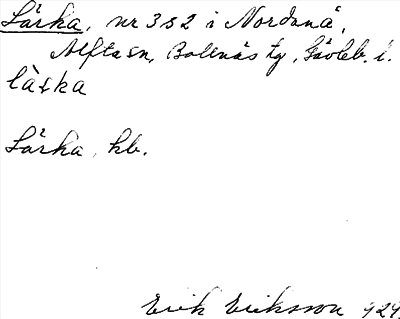 Lärka, nr 3 s 2 i Nordanå,
Alfta sn, Bollnäs tg, Gävleb. l.
lä̀rka
Lärka, hb.
Erik Eriksson 1929.